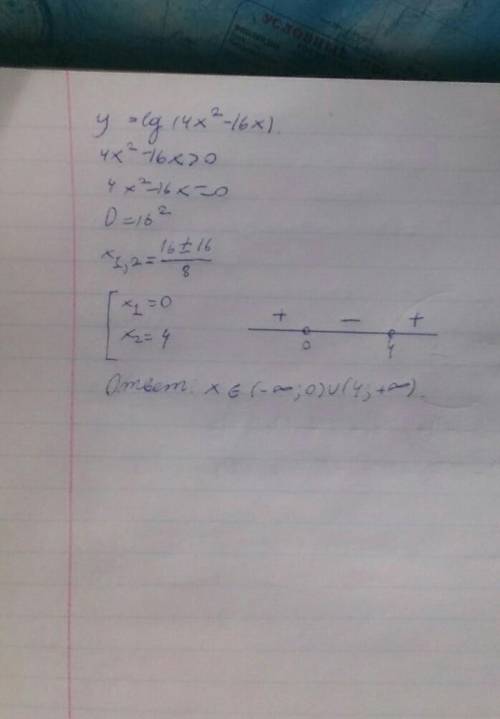 УСЛОВНЫЕ
y = lg (4x² -16x).
4x² -16x>0
4x² -16x=0
D =16²
x₁,₂ = (16 ± 16)/8
[ x₁ =0
x₂ = 4
+ − +
0 4
Ответ: x ∈ (-∞; 0)∪(4; +∞).